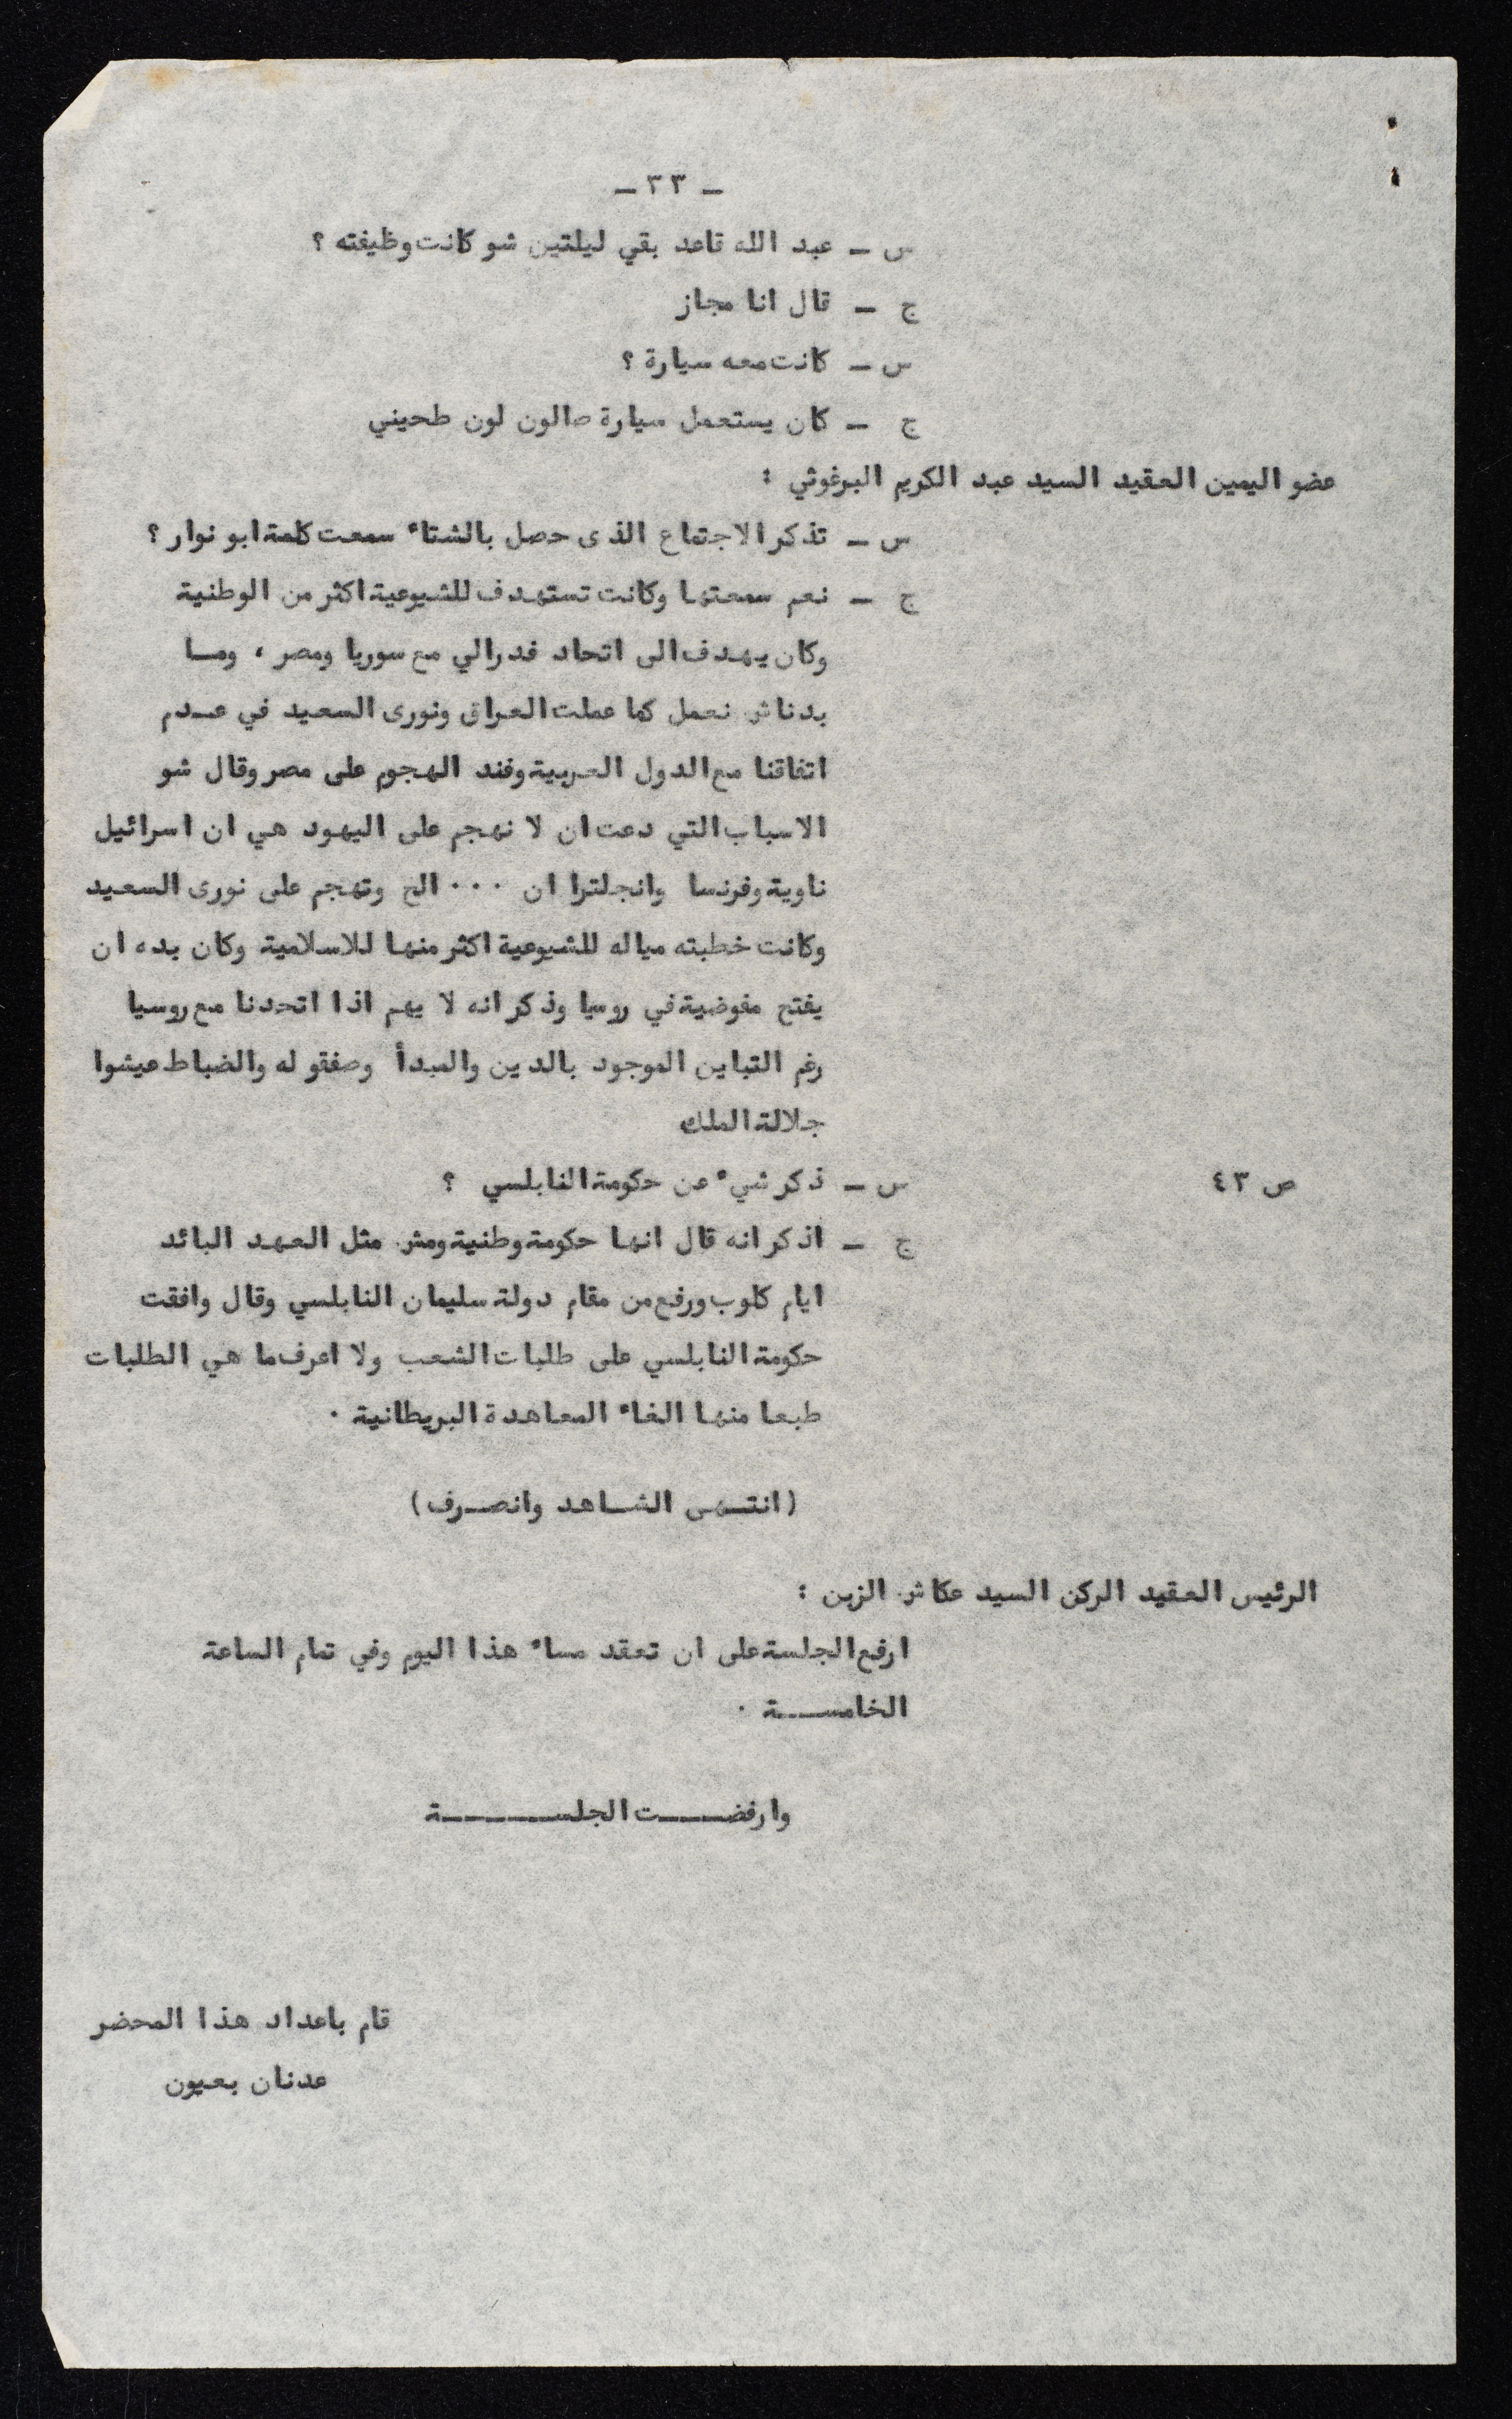 - ٣٣ -
س - عبد الله قاعد بقي ليلتين شو كانت وظيفته ؟
ج - قال انا مجاز
س - كانت معه سيارة ؟
ج - كان يستعمل سيارة صالون لون طحيني
عضو اليمين العقيد السيد عبد الكريم البرغوثي :
س - تذكر الاجتماع الذى حصل بالشتاء سمعت كلمة ابو نوار ؟
ج - نعم سمعتها وكانت تستهدف للشيوعية اكثر من الوطنية
وكان يهدف الى اتحاد فدرالي مع سوريا ومصر ، ومـا
بدناش نعمل كما عملت العراق ونورى السعيد في عـدم
اتفاقنا مع الدول العربية وفند الهجوم على مصر وقال شو
الاسباب التي دعت ان لا نهجم على اليهود هي ان اسرائيل
ناوية وفرنسا وانجلترا ان ... الخ وتهجم على نورى السعيد
وكانت خطبته مياله للشيوعية اكثر منها للاسلامية وكان بده ان
يفتح مفوضية في روسيا وذكر انه لا يهم اذا اتحدنا مع روسيا
رغم التباين الموجود بالدين والمبدأ وصفقو له والضباط عيشوا
جلالة الملك
ص ٤٣ س - ذكر شيء عن حكومة النابلسي ؟
ج - اذكر انه قال انها حكومة وطنية ومش مثل العهد البائد
ايام كلوب ورفع من مقام دولة سليمان النابلسي وقال وافقت
حكومة النابلسي على طلبات الشعب ولا اعرف ما هي الطلبات
طبعا منها الغاء المعاهدة البريطانية .
(انتـهى الشـاهد وانصـرف)
الرئيس العقيد الركن السيد عكاش الزبن :
ارفع الجلسة على ان تعقد مساء هذا اليوم وفي تمام الساعة
الخامســة .
وارفضـــت الجلســـــة
قام باعداد هذا المحضر
عدنان بعيون